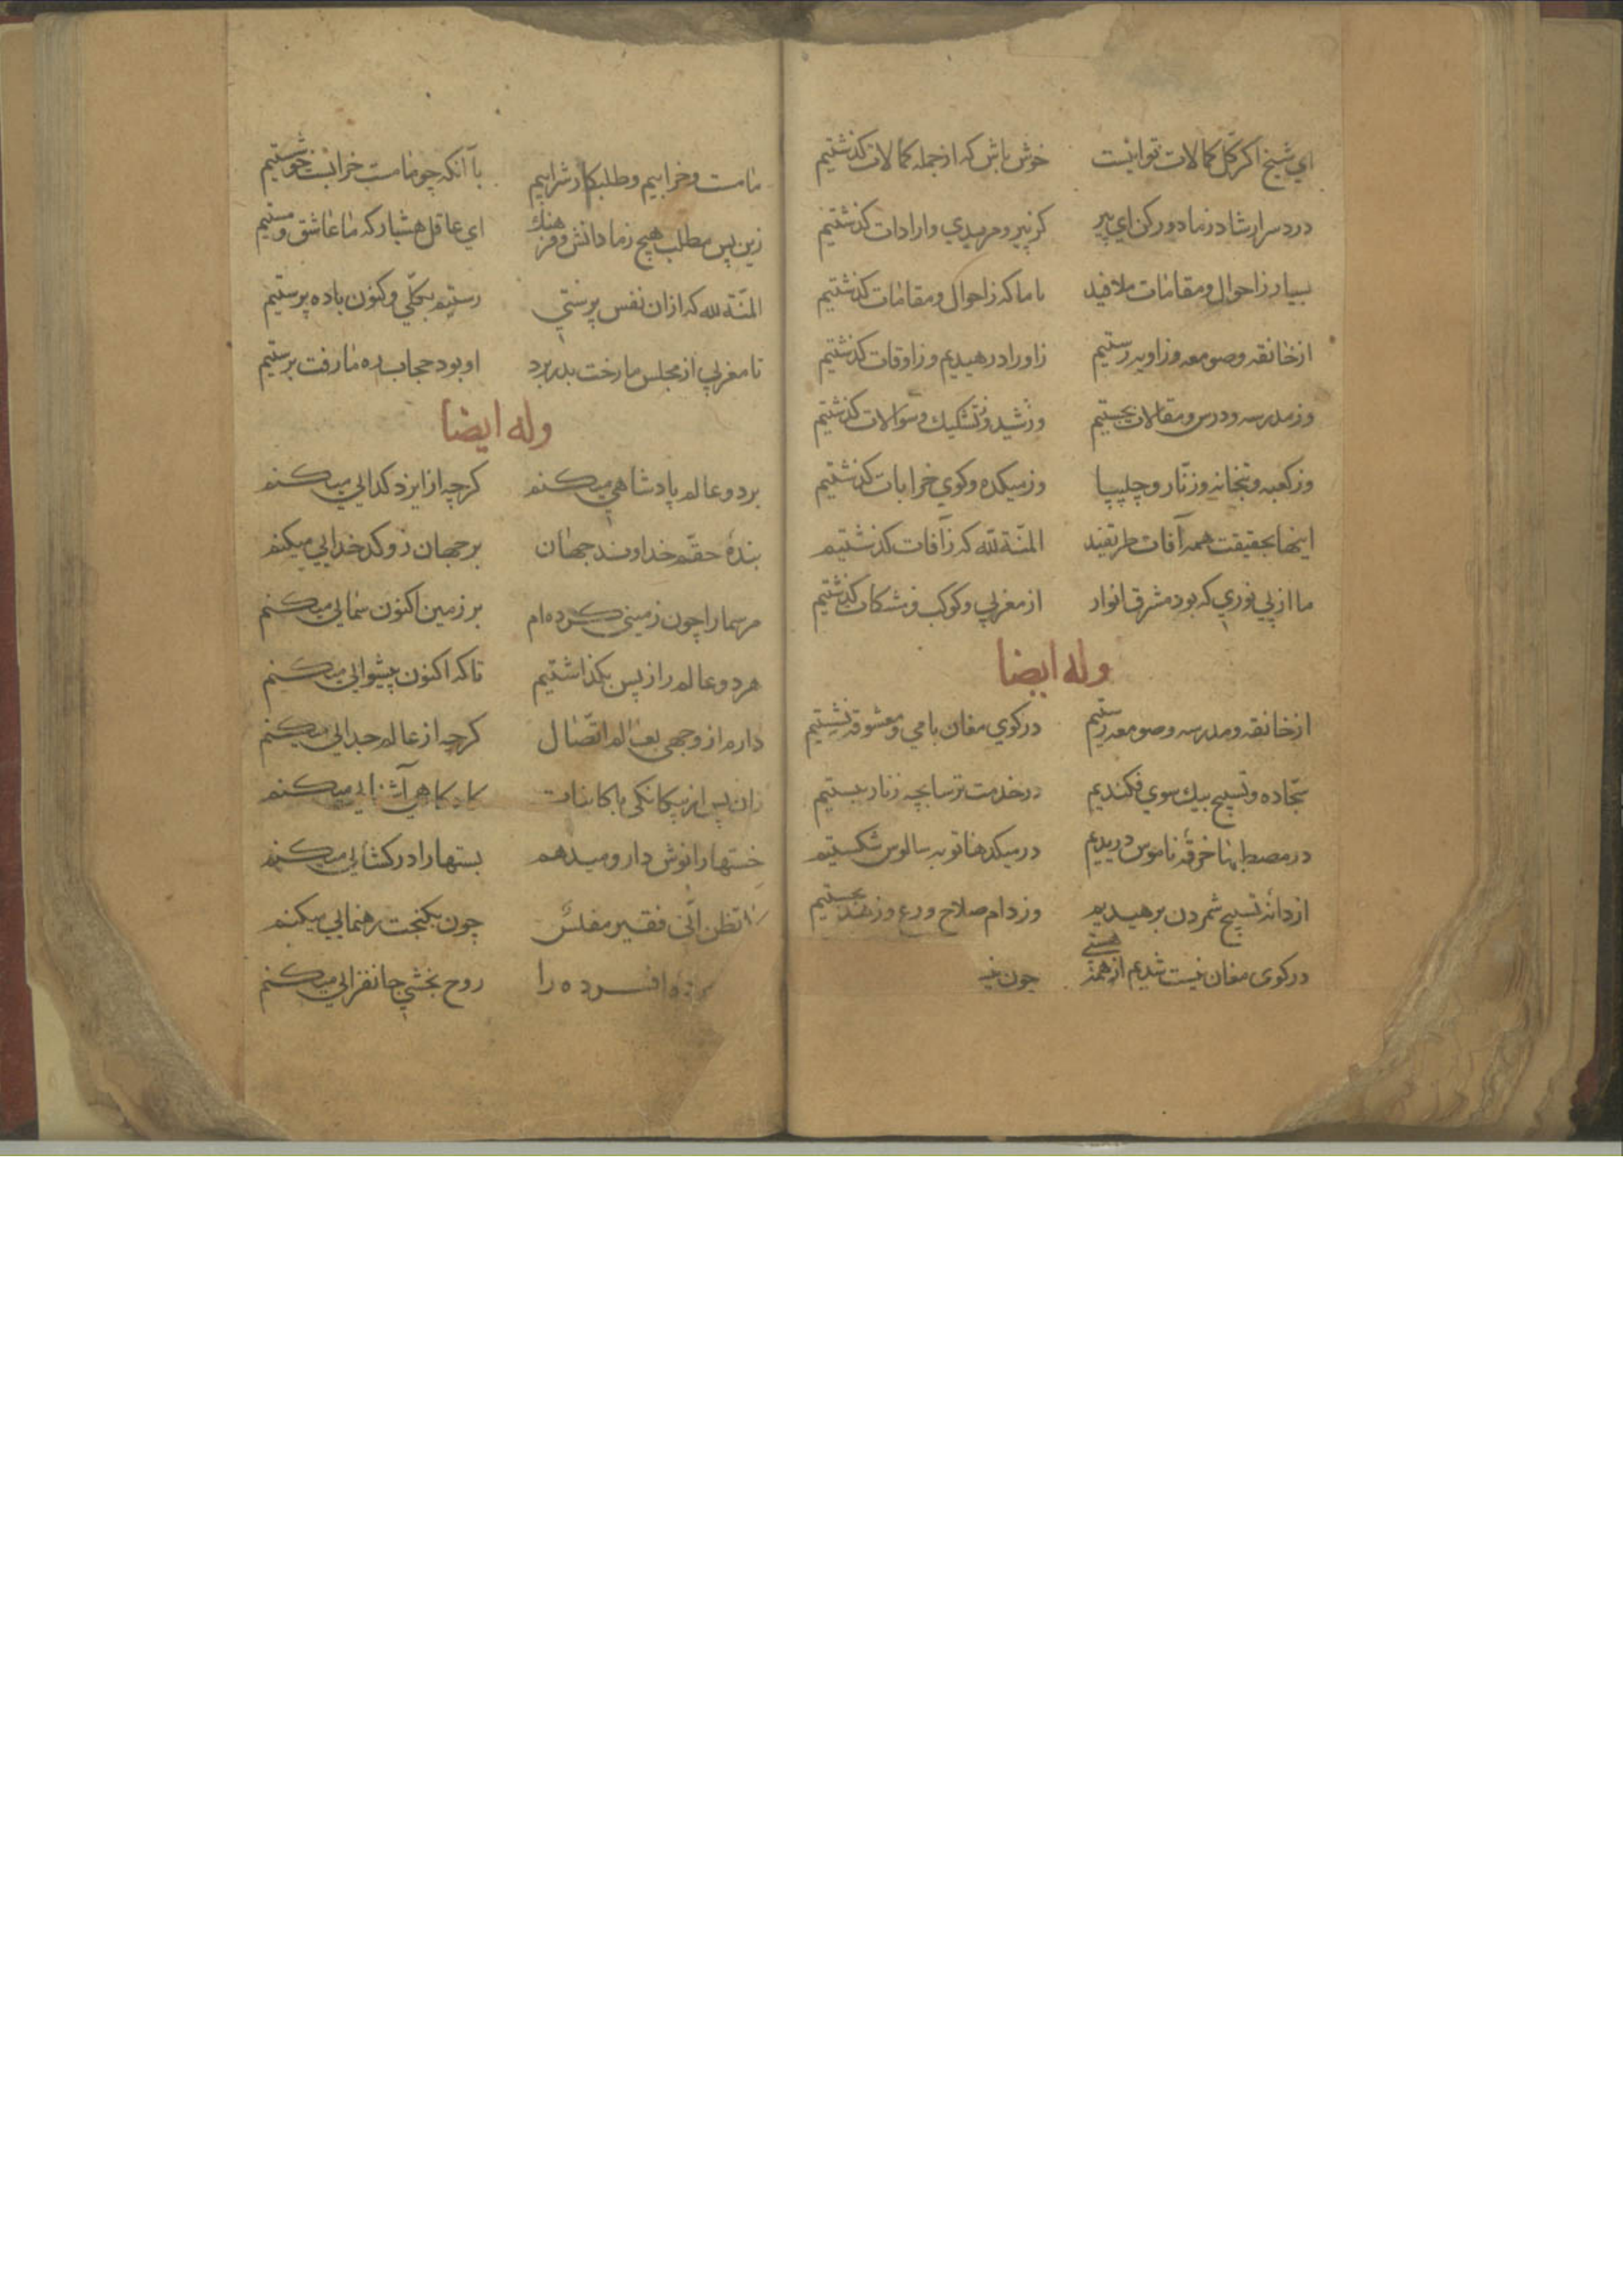 اي شيخ اكر كل كمالات تو اينست خوش باش كه از جمله كمالات كذشتيم
درد سر ارشاد ز ما دور كن اي پير كز پير و مريدي و ارادات كذشتيم
بسيار ز احوال و مقامات ملافيد با ما كه ز احوال و مقامات كذشتيم
از خانقه و صومعه و زاويه رستيم ز اوراد رهيديم و ز اوقات كذشتيم
وز مدرسه و درس و مقالات بجستيم وز شبه و تشكيك و سوالات كذشتيم
وز كعبه و بتخانه و زنّار و چليپا وز ميكده و كوي خرابات كذشتيم
اينها بحقيقت همه آفات طريقند المنّة لله كه ز آفات كذشتيم
ما از پي نوري كه بود مشرق انوار از مغربي و كوكب و مشكات كذشتيم
وله ايضا
از خانقه و مدرسه و صومعه رستيم در كوي مغان با مي و معشوقه نشستيم
سجّاده و تسبيح بيك سوي فكنديم در خدمت ترسابچه زنار ببستيم
در مصطبها خرقه ناموس دريديم در ميكدها توبه سالوس شكستيم
از دانه تسبيح شمردن برهيديم وز دام صلاح و ورع و زهد بجستيم
در كوى مغان نيست شديم از همه هستى چون
ما مست و خرابيم و طلبكار شرابيم با آنكه چو ما مست خرابست خوشستيم
زين پس مطلب هيچ ز ما دانش و فرهنك اي عاقل هشيار كه ما عاشق و مستيم
المنّة لله كه ازان نفس پرستي رستيم بكلّي و كنون باده پرستيم
تا مغربي از مجلس ما رخت بدر برد او بود حجاب ره ما رفت برستيم
وله ايضا
بر دو عالم پادشاهي ميكنم كرچه از ايزد كدايي ميكنم
بندهٔ حقّم خداوند جهان بر جهان زو كدخدايي ميكنم
مر سما را چون زميني كرده‌ام بر زمين اكنون سمايي ميكنم
هر دو عالم را ز پس بكذاشتيم تا كه اكنون پيشوايي ميكنم
دارم از وجهى بعالم اتّصال كرچه از عالم جدايي ميكنم
زان پس از بيكانكى با كاينات كاه كاهي آشنايي ميكنم
خستها را نوش دارو ميدهم بستها را در كشايي ميكنم
لا تظن انّى فقير مفلس چون بكنجت رهنمايي ميكنم
افسرده را روح بخشي جانفزايي ميكنم